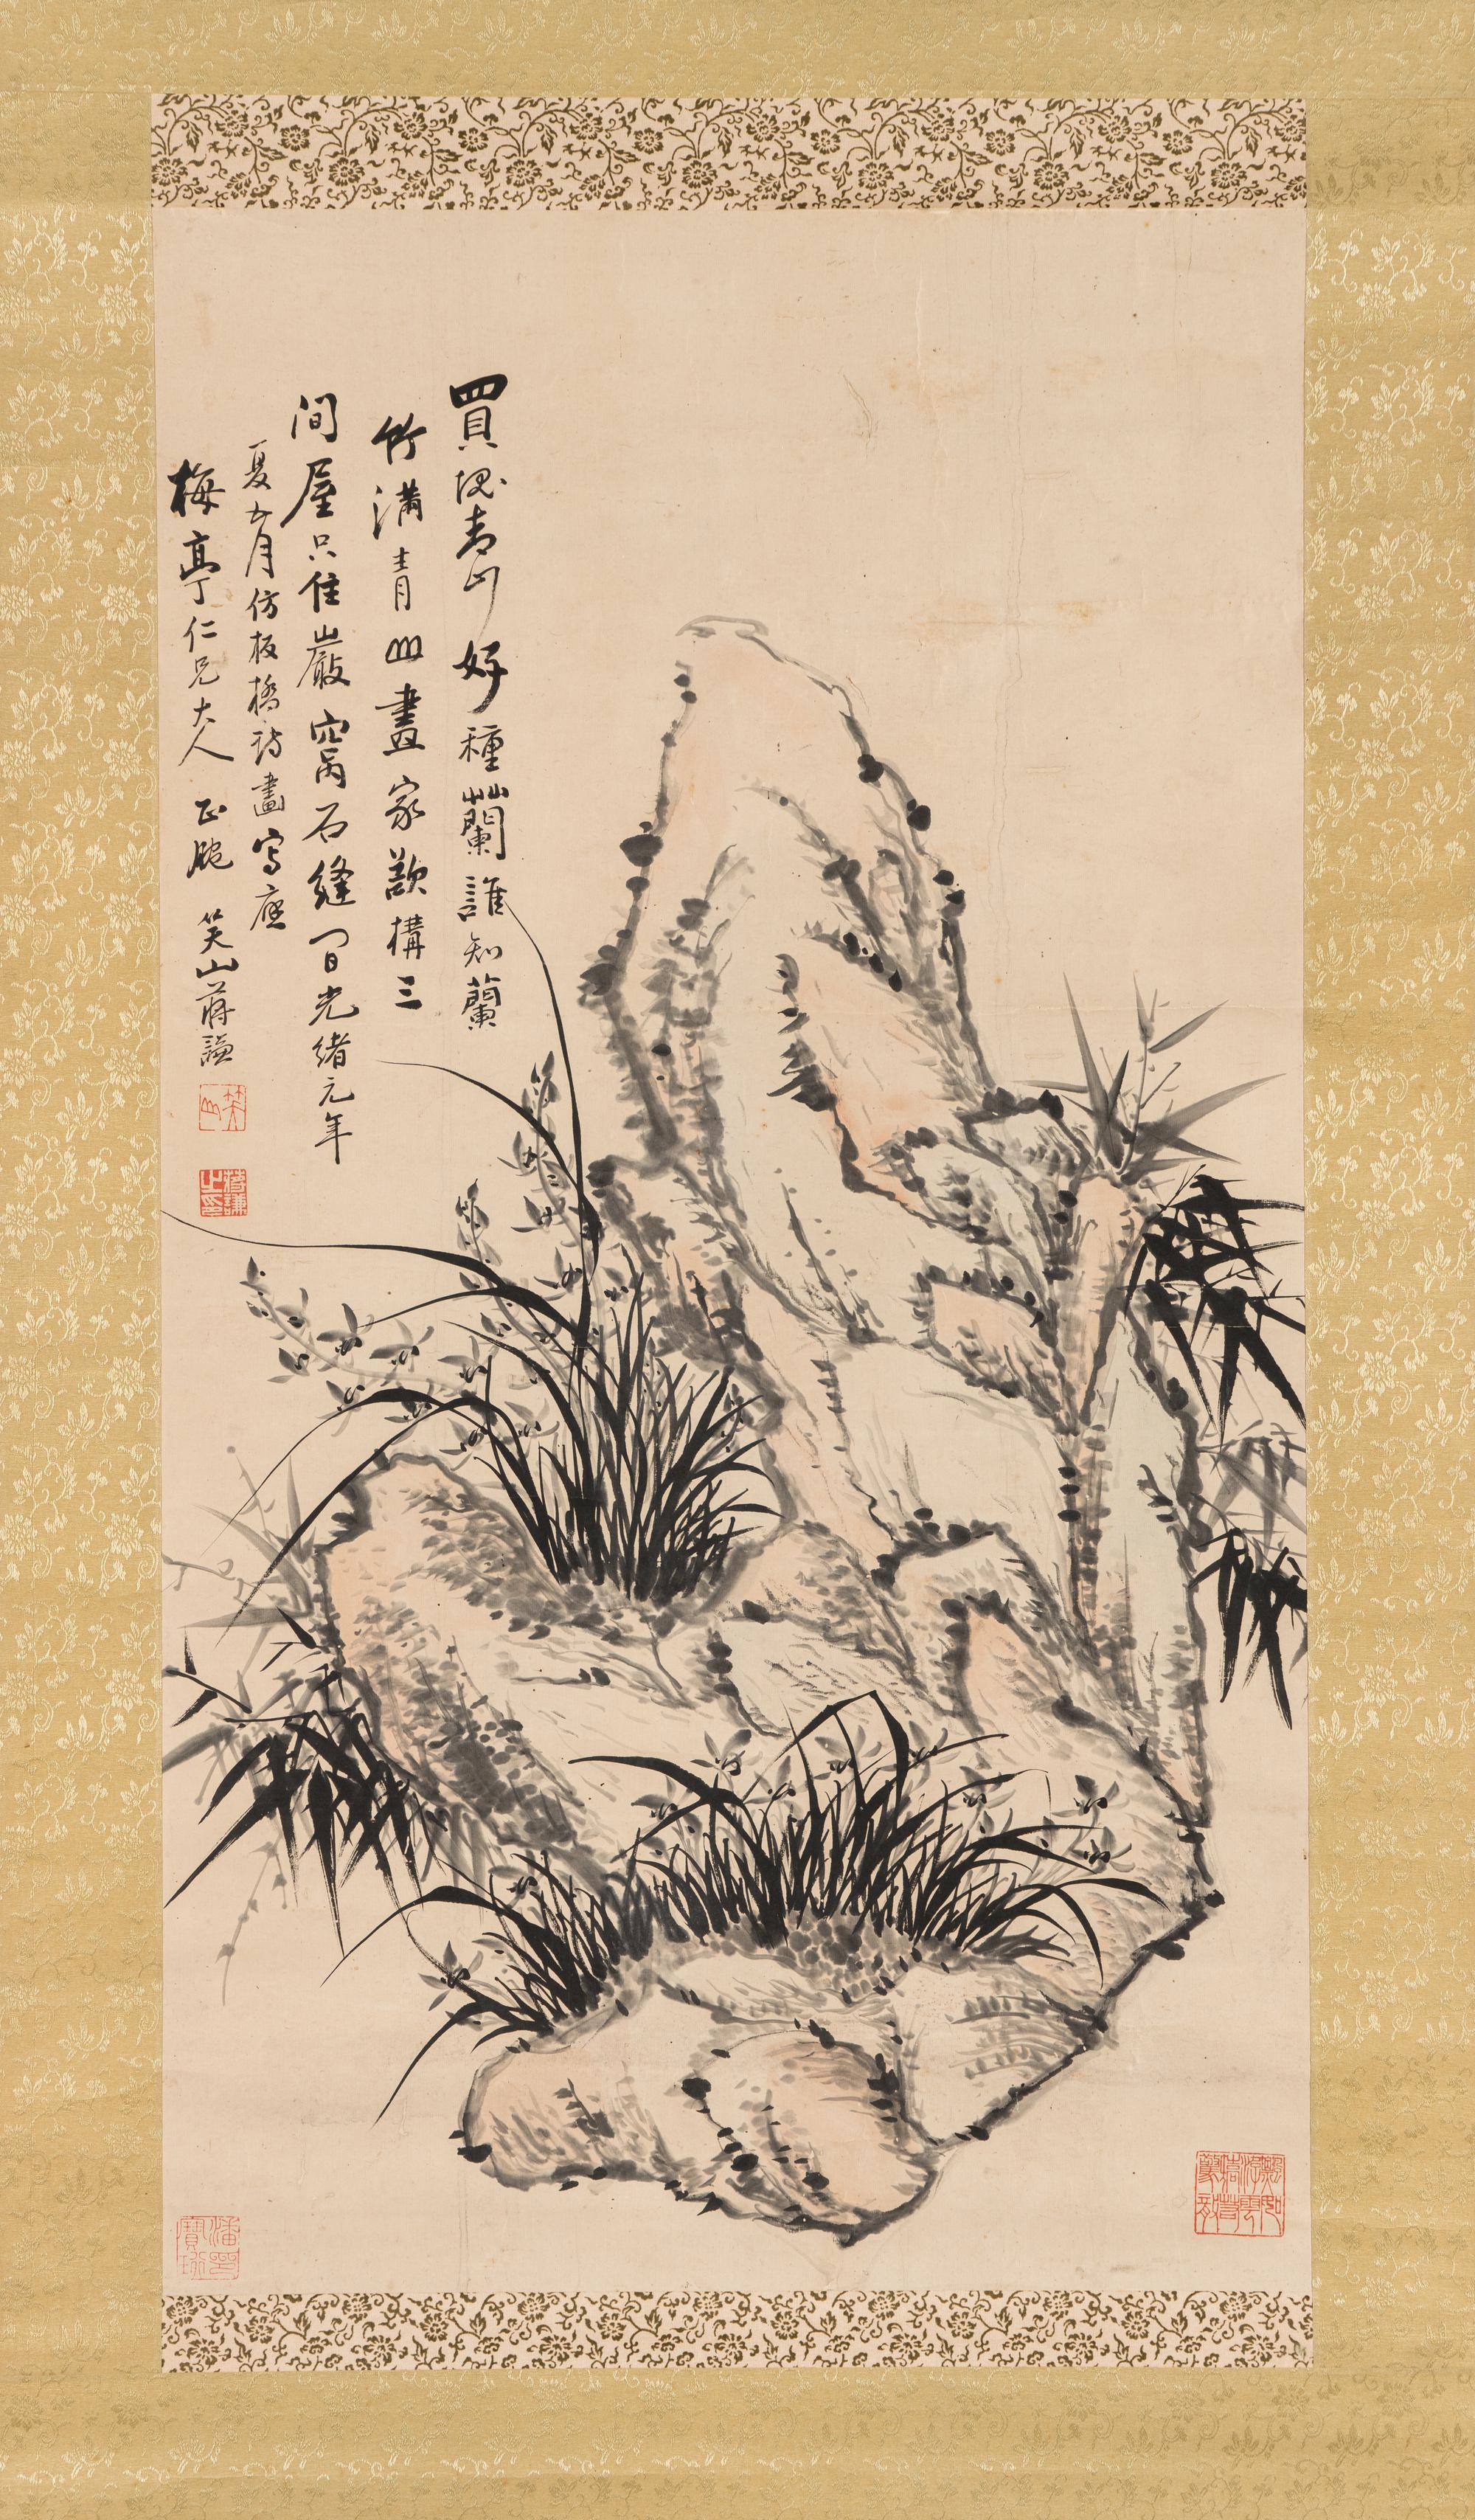 買塊青山好種蘭誰知蘭
竹滿青山畫家欲構三
間屋只住巖窩石縫間光緒元年
夏五月仿板橋詩畫寫應
梅亭仁兄大人 正腕 笑山蔣謙
笑山
蔣謙之印